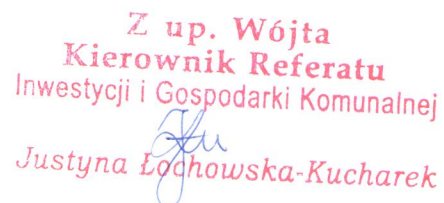 Z up. Wójta
Kierownik Referatu
Inwestycji i Gospodarki Komunalnej
Justyna Łochowska-Kucharek